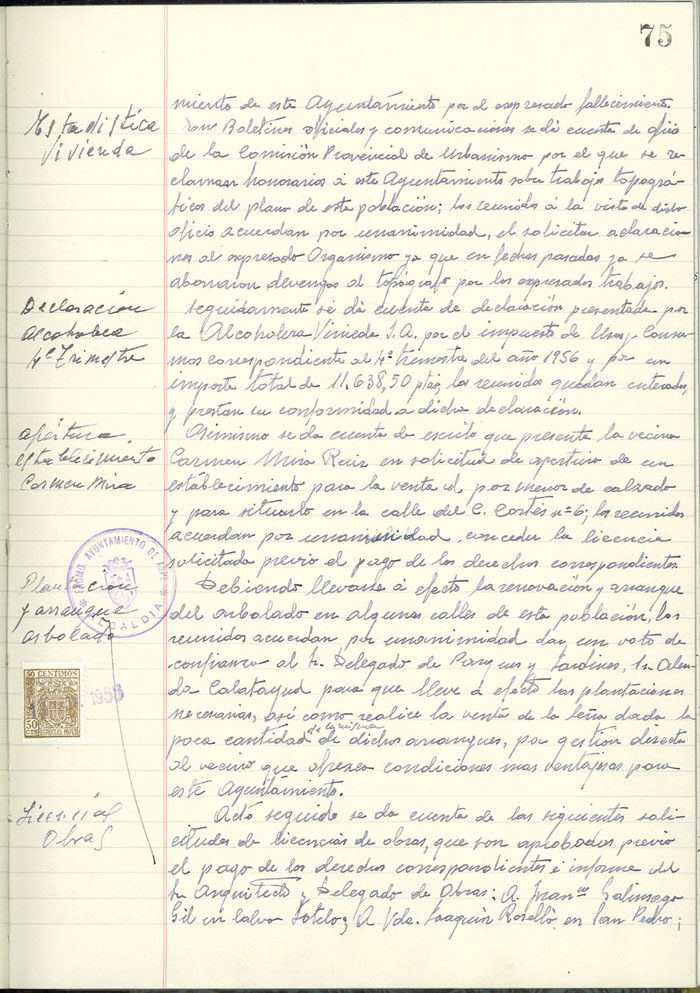 75
Estadística
Vivienda
miento de este Ayuntamiento por el expresado fallecimiento.
Boletines oficiales y comunicaciones se dá cuenta de oficio
de la Comisión Provincial de Urbanismo por el que se re-
claman honorarios á este Ayuntamiento sobre trabajos topográ-
ficos del plano de esta población; los reunidos á la vista de dicho
oficio acuerdan por unanimidad, el solicitar aclaracio-
nes al expresado Organismo ya que en fechas pasadas ya se
abonaron devengos al topógrafo por los expresados trabajos.
Declaración
Alcoholera
4º Trimestre
Seguidamente se dá cuenta de declaración presentada por
la Alcoholera Vinícola S.A. por el impuesto de Usos y Consu-
mos correspondiente al 4º trimestre del año 1956 y por un
importe total de 11.638,50 ptas, los reunidos quedan enterados,
y prestan su conformidad a dicha declaración.
apertura
establecimiento
Carmen Mira
Asimismo se da cuenta de escrito que presenta la vecina
Carmen Mira Ruiz en solicitud de apertura de un
establecimiento para la venta al por menor de calzado
y para situarlo en la calle del C. Cortés nº 6; los reunidos
acuerdan por unanimidad, conceder la licencia
solicitada previo el pago de los derechos correspondientes.
EXCMO. AYUNTAMIENTO DE ASPE
ALCALDIA
Plantación
y arranque
arbolado
Debiendo llevarse á efecto la renovación y arranque
del arbolado en algunas calles de esta población, los
reunidos acuerdan por unanimidad dar un voto de
confianza al Sr. Delegado de Parques y Jardines, Sr.
Calatayud para que lleve á efecto las plantaciones
necesarias, así como realice la venta de la leña dada la
poca cantidad de la misma de dichos arranques, por gestión directa
al vecino que ofrezca condiciones mas ventajosas para
este Ayuntamiento.
50 CENTIMOS
ESPECIAL MOVIL
50 CTS
Licencias
Obras
Acto seguido se da cuenta de las siguientes soli-
citudes de licencias de obras, que son aprobadas previo
el pago de los derechos correspondientes é informe del
Sr. Arquitecto y Delegado de Obras: A Franco Galinsoga
Gil en Calvo Sotelo; A Vda. Joaquín Roselló en San Pedro;